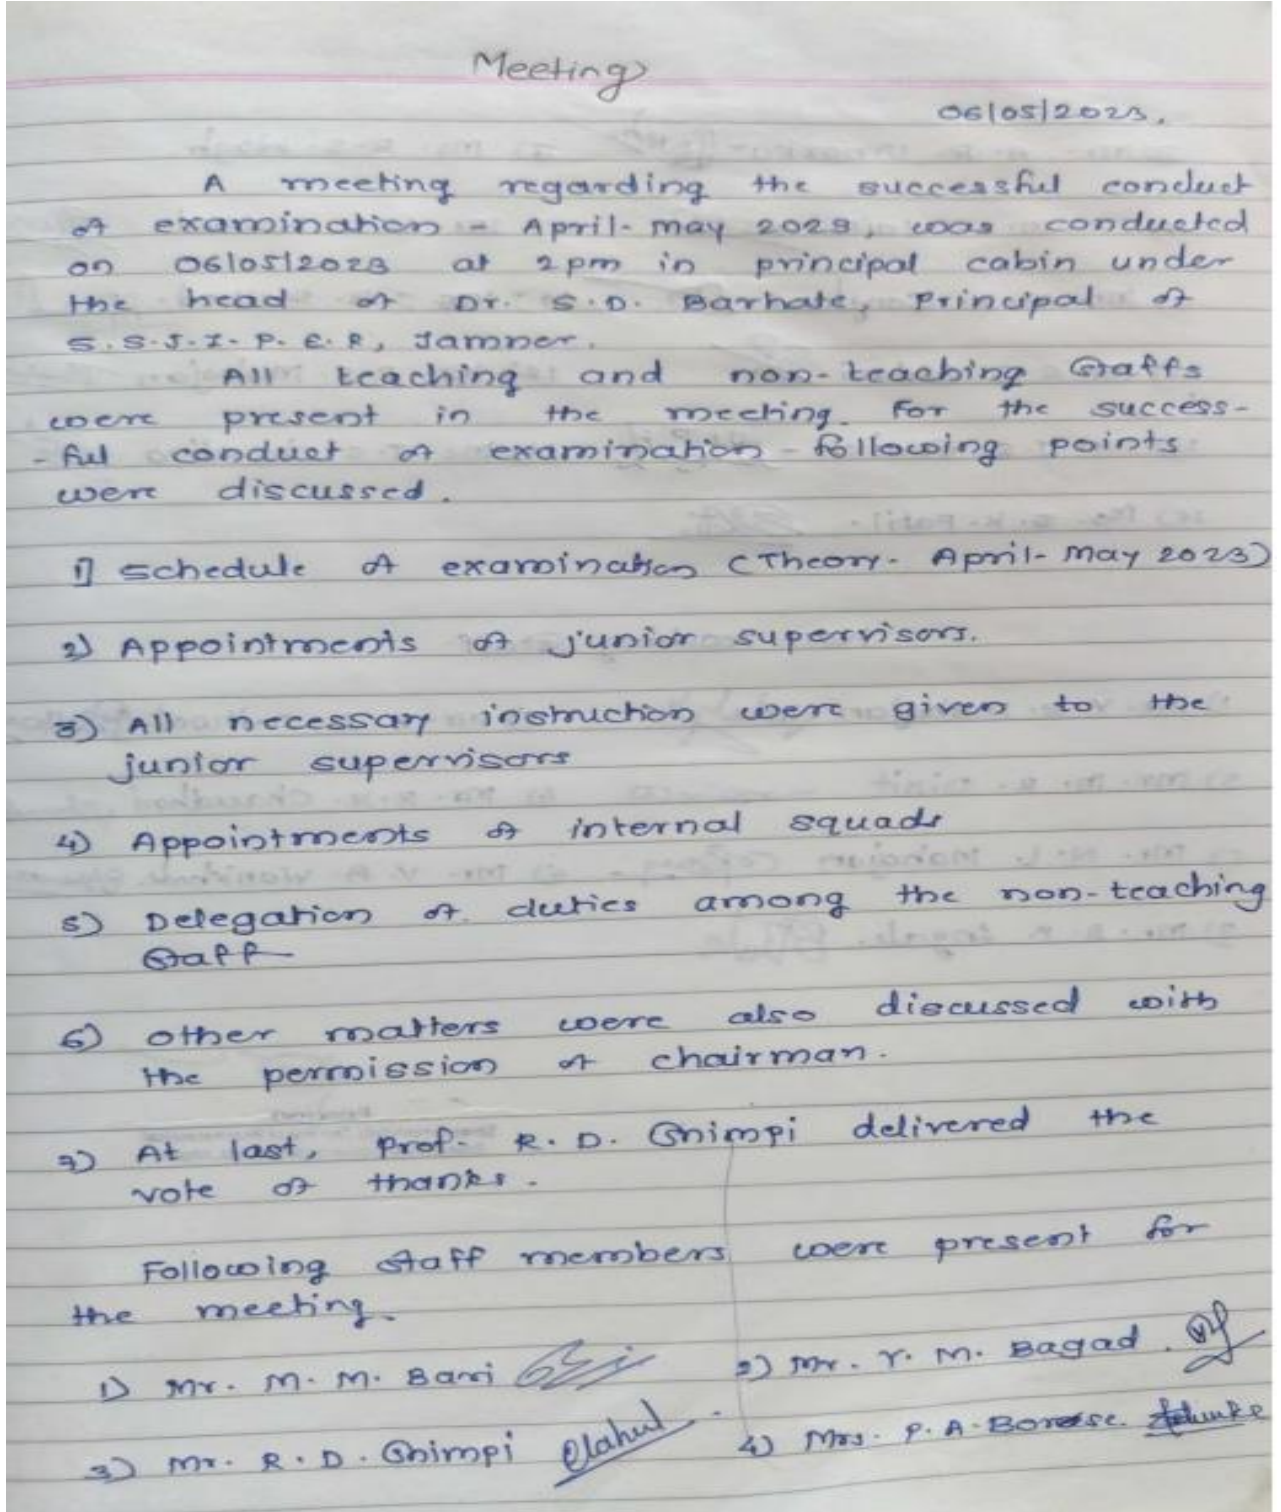 Meeting
06/05/2023.
A meeting regarding the successful conduct
of examination - April-May 2023, was conducted
on 06/05/2023 at 2pm in principal cabin under
the head of Dr. S.D. Barhate, Principal of
S.S.J.I.P.E.R, Jamner.
All teaching and non-teaching Staffs
were present in the meeting. For the success-
-ful conduct of examination following points
were discussed.
1] Schedule of examination (Theory- April-May 2023)
2) Appointments of junior supervisors.
3) All necessary instruction were given to the
junior supervisors
4) Appointments of internal squads
5) Delegation of duties among the non-teaching
Staff
6) Other matters were also discussed with
the permission of chairman.
7) At last, Prof. R.D. Shimpi delivered the
vote of thanks.
Following staff members were present for
the meeting.
1) Mr. M. M. Bari 2) Mr. Y. M. Bagad.
3) Mr. R. D. Shimpi 4) Mrs. P. A. Borse.